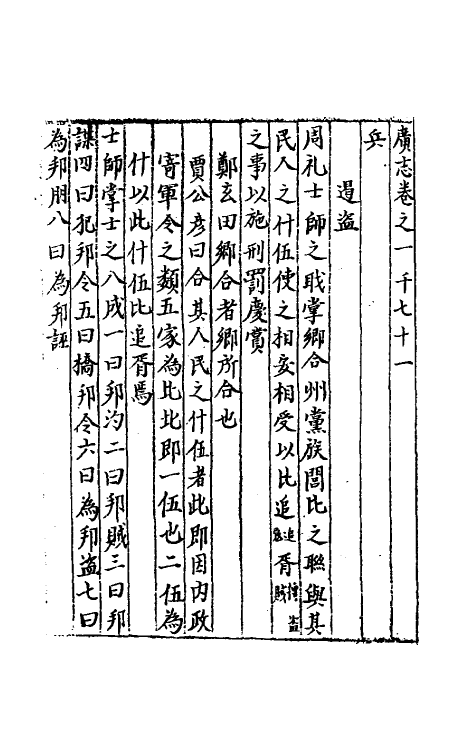 廣志卷之一千七十一
兵
遏盜
周礼士師之戢掌鄉合州黨族閭比之聯與其
民人之什伍使之相安相受以比追追寇胥捕盜賊
之事以施刑罰慶賞
鄭玄曰鄉合者鄉所合也
賈公彥曰合其人民之什伍者此即因内政
寄軍令之類五家為比比即一伍也二伍為
什以此什伍比追胥焉
士師掌士之八成一曰邦汋二曰邦賊三曰邦
諜四曰犯邦令五曰撟邦令六曰為邦盜七曰
為邦朋八曰為邦誣